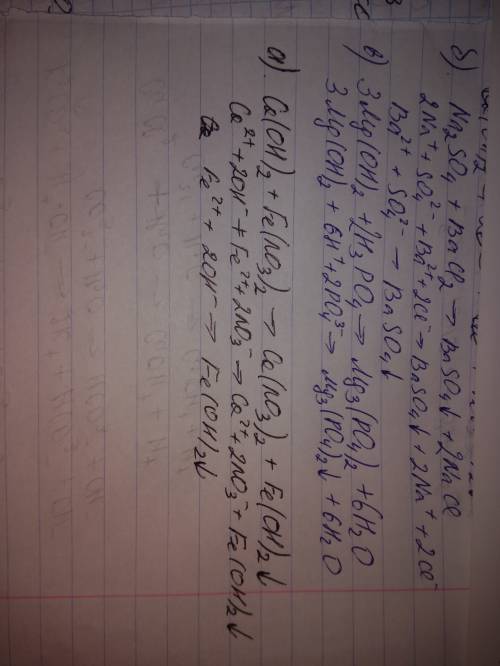 б). Na₂SO₄ + BaCl₂ → BaSO₄↓ + 2NaCl
2Na⁺ + SO₄²⁻ + Ba²⁺ + 2Cl⁻ → BaSO₄↓ + 2Na⁺ + 2Cl⁻
Ba²⁺ + SO₄²⁻ → BaSO₄↓
в) 3Mg(OH)₂ + 2H₃PO₄ → Mg₃(PO₄)₂ + 6H₂O
3Mg(OH)₂ + 6H⁺ + 2PO₄³⁻ → Mg₃(PO₄)₂↓ + 6H₂O
а). Ca(OH)₂ + Fe(NO₃)₂ → Ca(NO₃)₂ + Fe(OH)₂↓
Ca²⁺ + 2OH⁻ + Fe²⁺ + 2NO₃⁻ → Ca²⁺ + 2NO₃⁻ + Fe(OH)₂↓
Fe²⁺ + 2OH⁻ → Fe(OH)₂↓